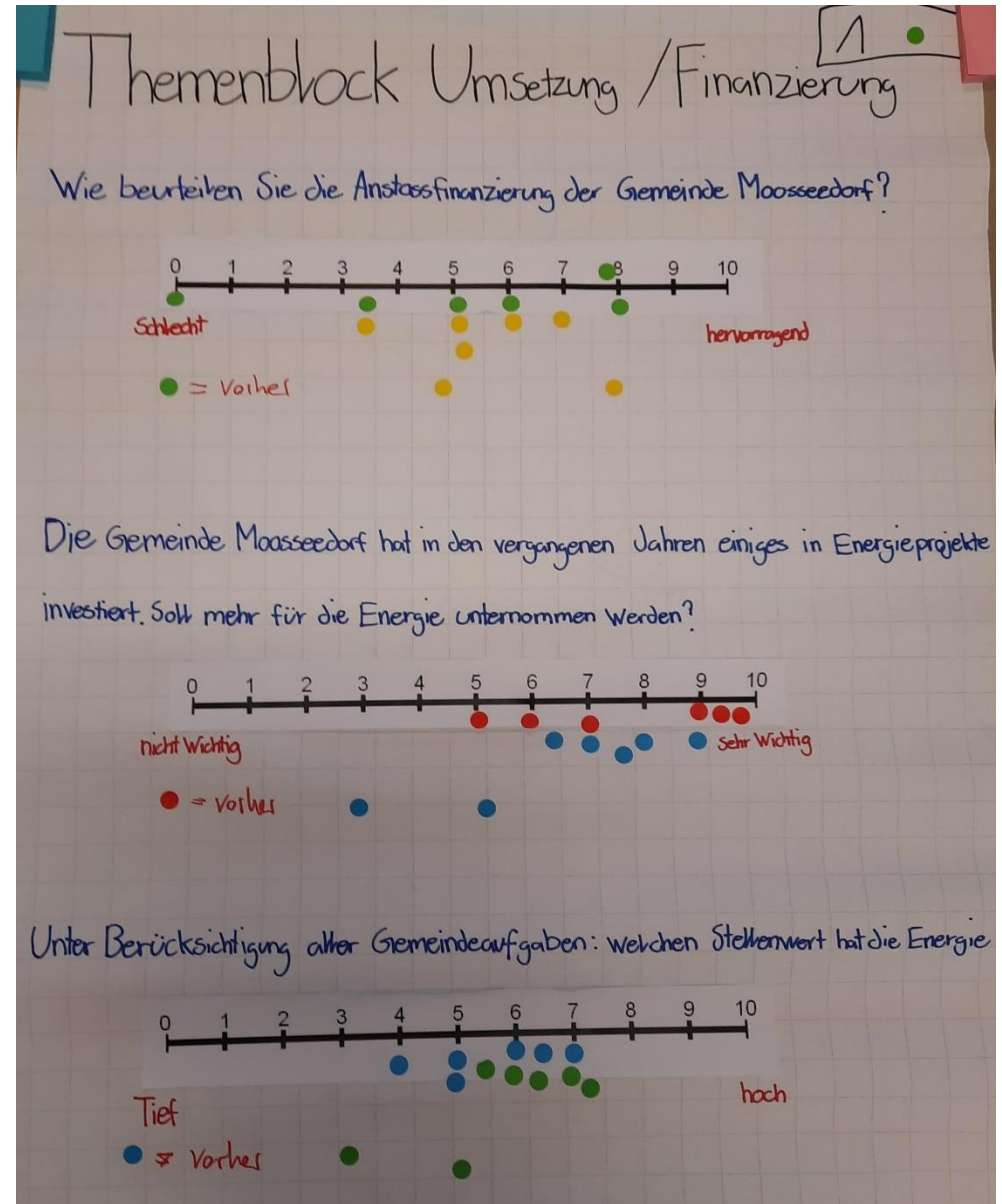 1
Themenblock Umsetzung / Finanzierung
Wie beurteilen Sie die Anstossfinanzierung der Gemeinde Moosseedorf?
0 1 2 3 4 5 6 7 8 9 10
Schlecht hervorragend
= Vorher
Die Gemeinde Moosseedorf hat in den vergangenen Jahren einiges in Energieprojekte
investiert. Soll mehr für die Energie unternommen werden?
0 1 2 3 4 5 6 7 8 9 10
nicht Wichtig Sehr Wichtig
= Vorher
Unter Berücksichtigung aller Gemeindeaufgaben: welchen Stellenwert hat die Energie
0 1 2 3 4 5 6 7 8 9 10
Tief hoch
= Vorher